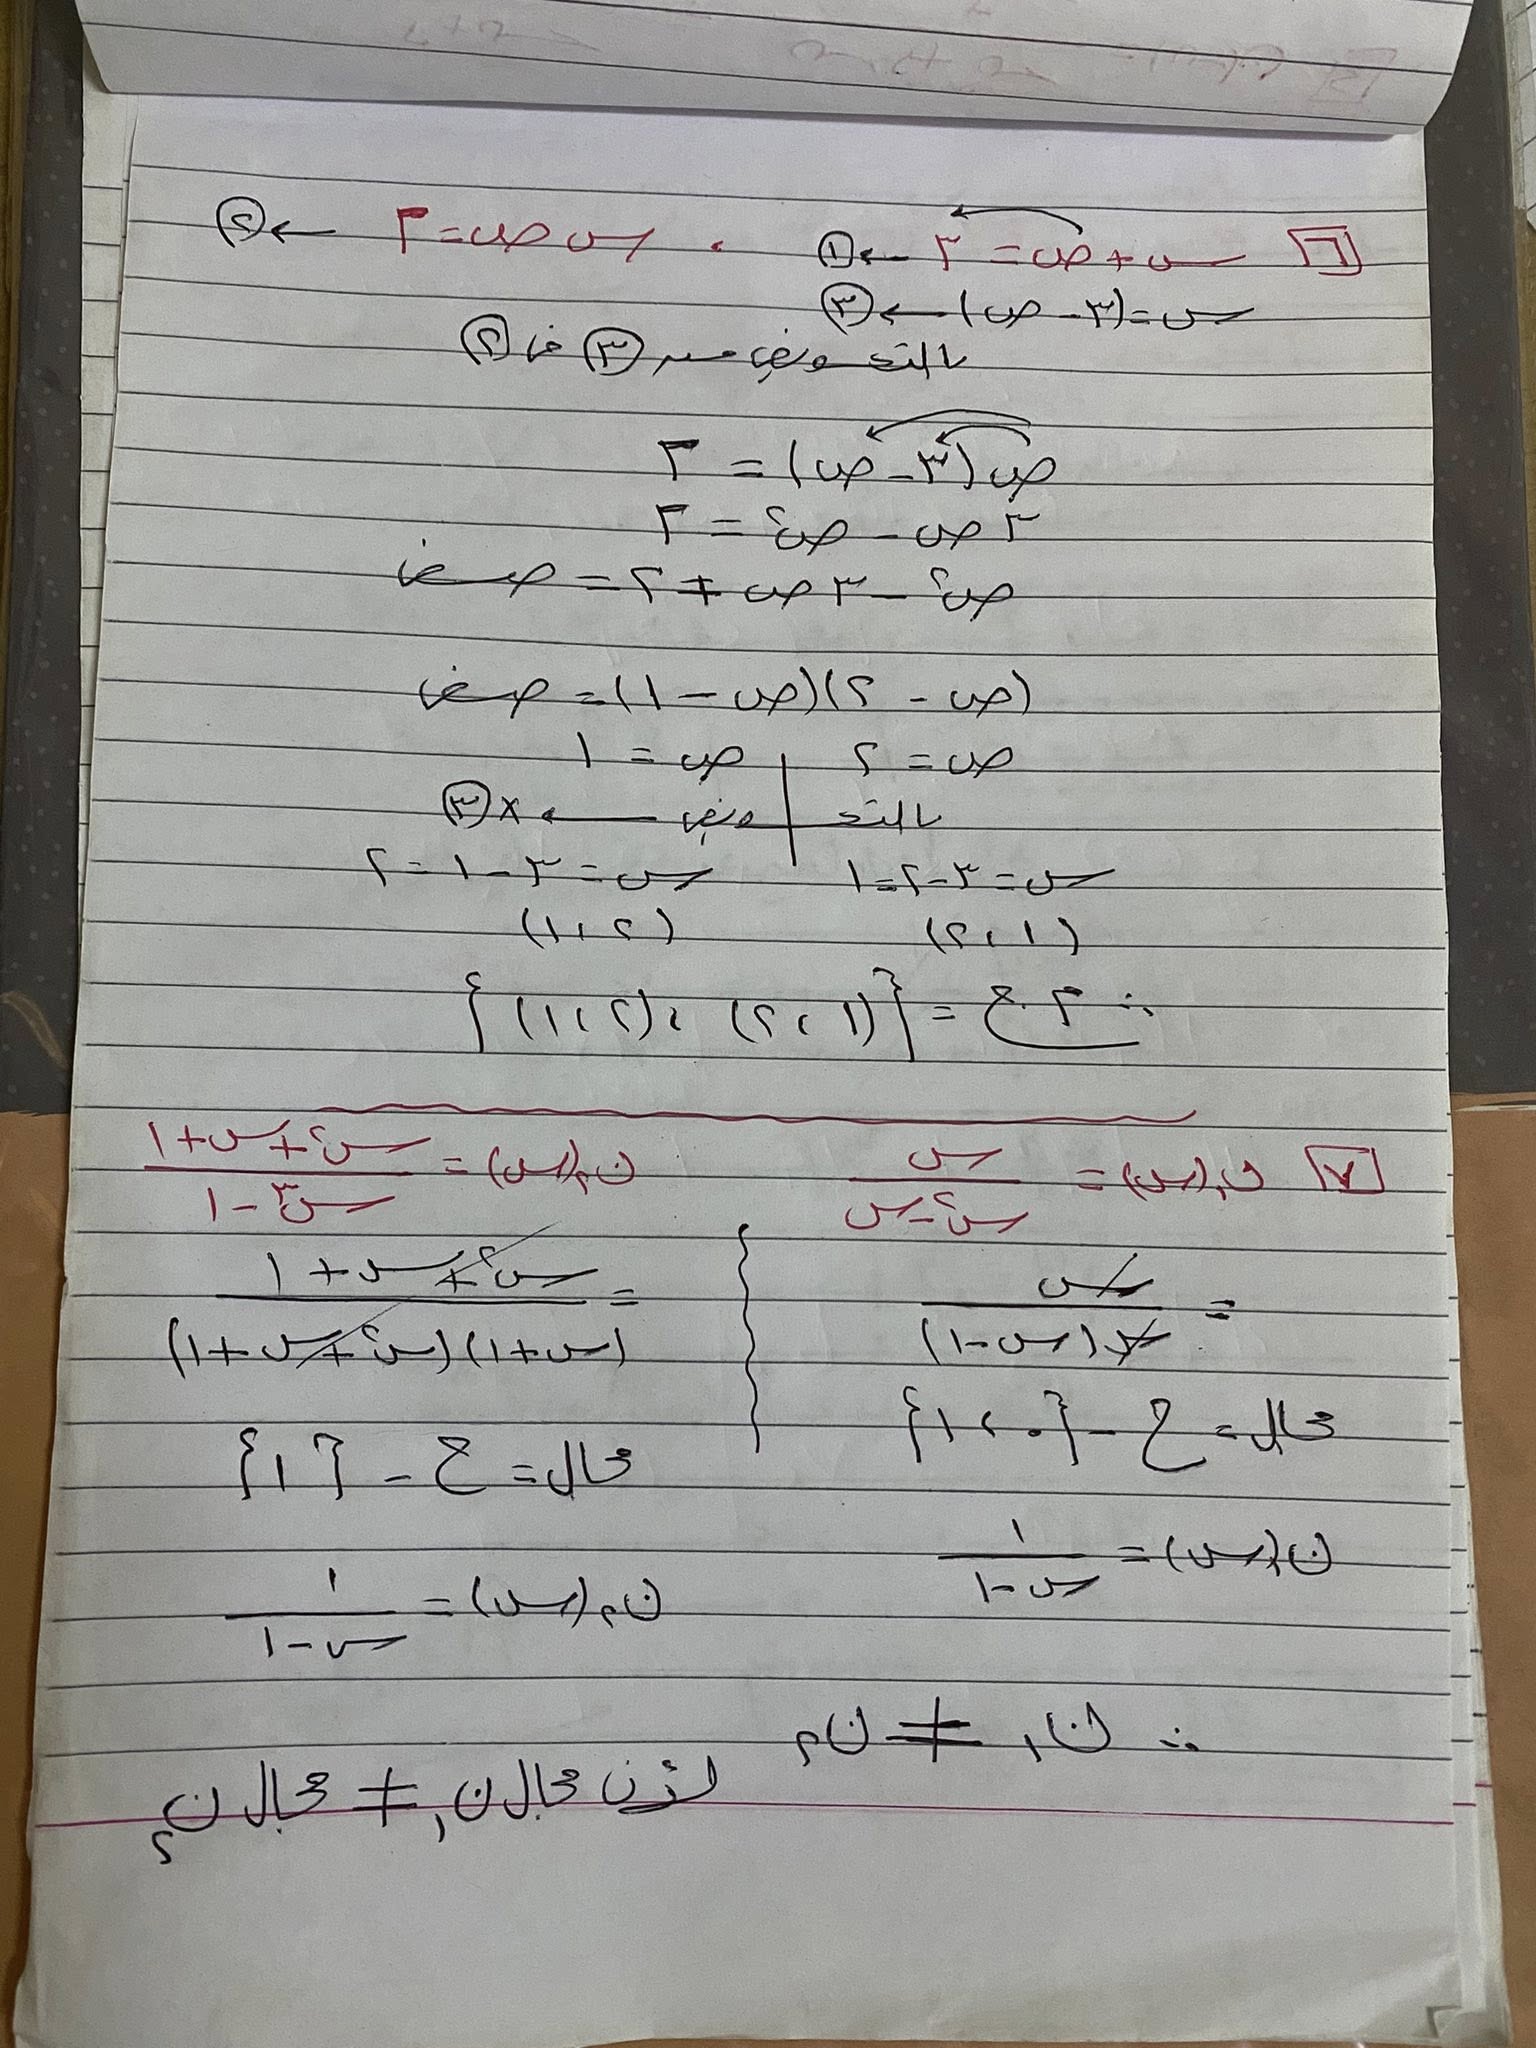 ٦ س + ص = ٣ ← ① ، س ص = ٢ ← ②
س = (٣ - ص) ← ③
بالتعويض من ③ في ②
ص (٣ - ص) = ٢
٣ ص - ص٢ = ٢
ص٢ - ٣ ص + ٢ = صفر
(ص - ٢)(ص - ١) = صفر
ص = ٢ | ص = ١
بالتعويض ← ③
س = ٣ - ٢ = ١ | س = ٣ - ١ = ٢
(١ ، ٢) (٢ ، ١)
∴ م.ح = {(١ ، ٢) ، (٢ ، ١)}
٧ ن١(س) = س / (س٢ - س) ن٢(س) = (س٢ + س + ١) / (س٣ - ١)
= س / س(س - ١) = (س٢ + س + ١) / (س + ١)(س٢ + س + ١)
مجال = ح - {٠ ، ١} مجال = ح - {١}
ن١(س) = ١ / (س - ١) ن٢(س) = ١ / (س - ١)
∴ ن١ ≠ ن٢
لأن مجال ن١ ≠ مجال ن٢